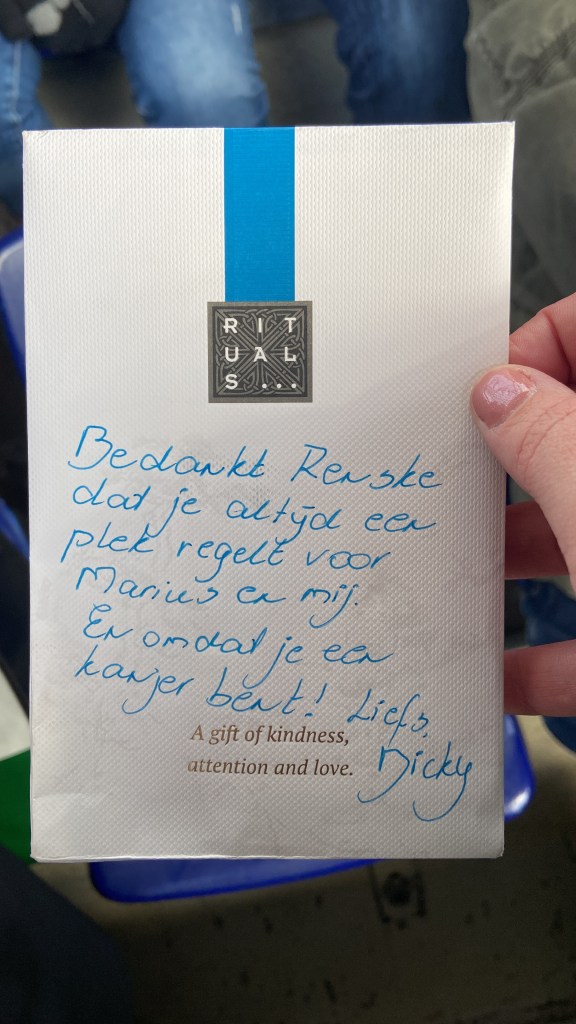 RIT
UAL
S...
Bedankt Renske
dat je altijd een
plek regelt voor
Marius en mij.
En omdat je een
kanjer bent! Liefs,
A gift of kindness,
attention and love.
Nicky